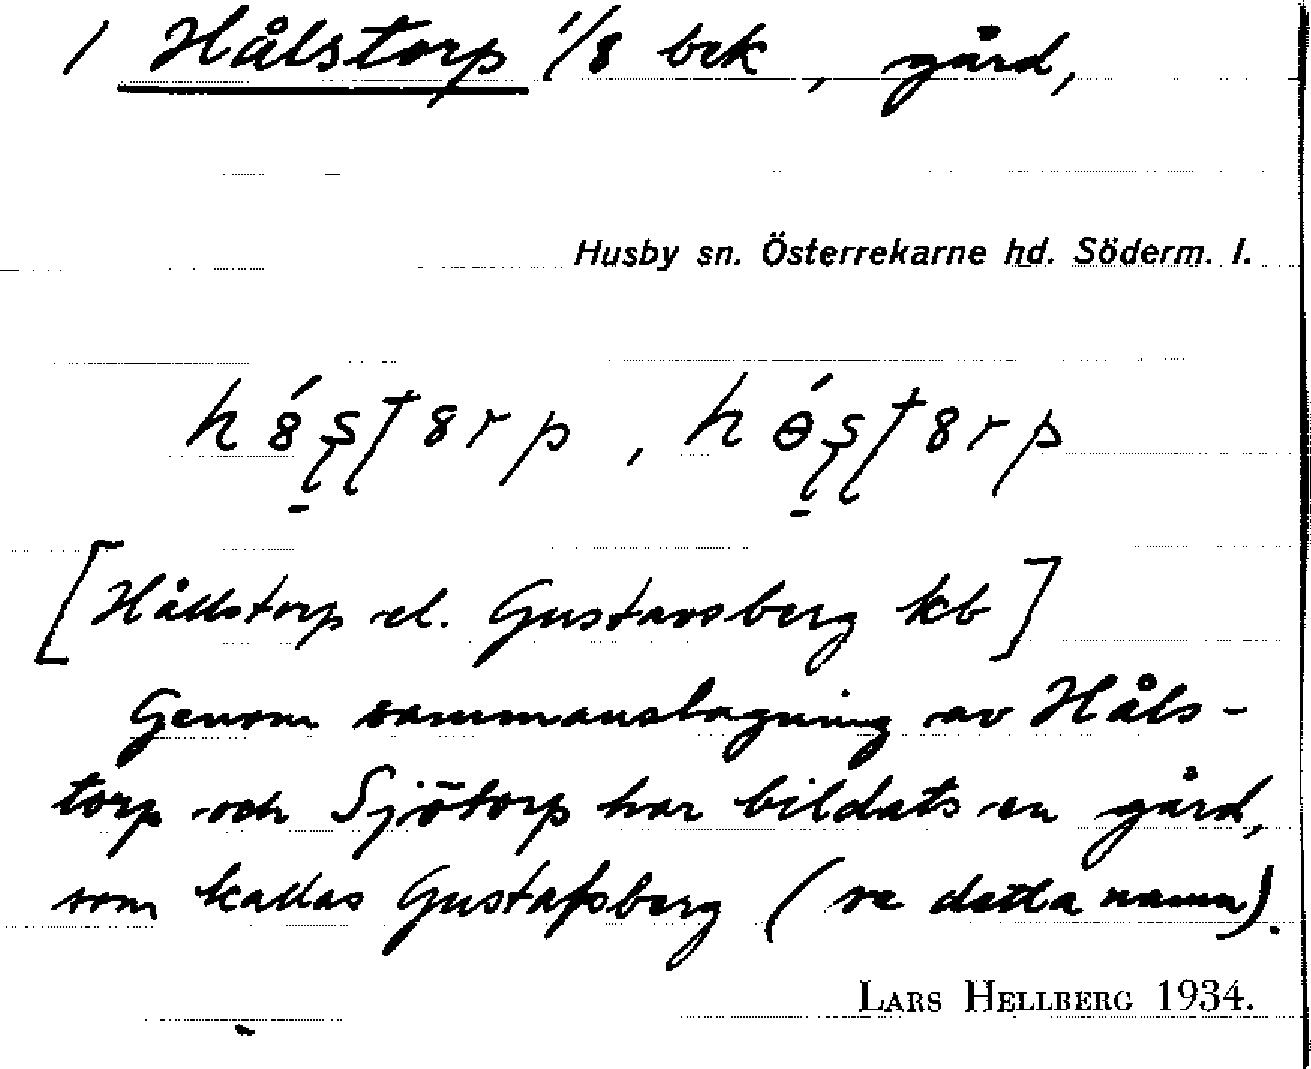 / Hålstorp 1/8 bek, gård,
Husby sn. Österrekarne hd. Söderm. l.
[Hållstorp el. Gustavsberg kb]
Genom sammanslagning av Håls-
torp och Sjötorp har bildats en gård,
som kallas Gustafsberg (se detta namn).
LARS HELLBERG 1934.